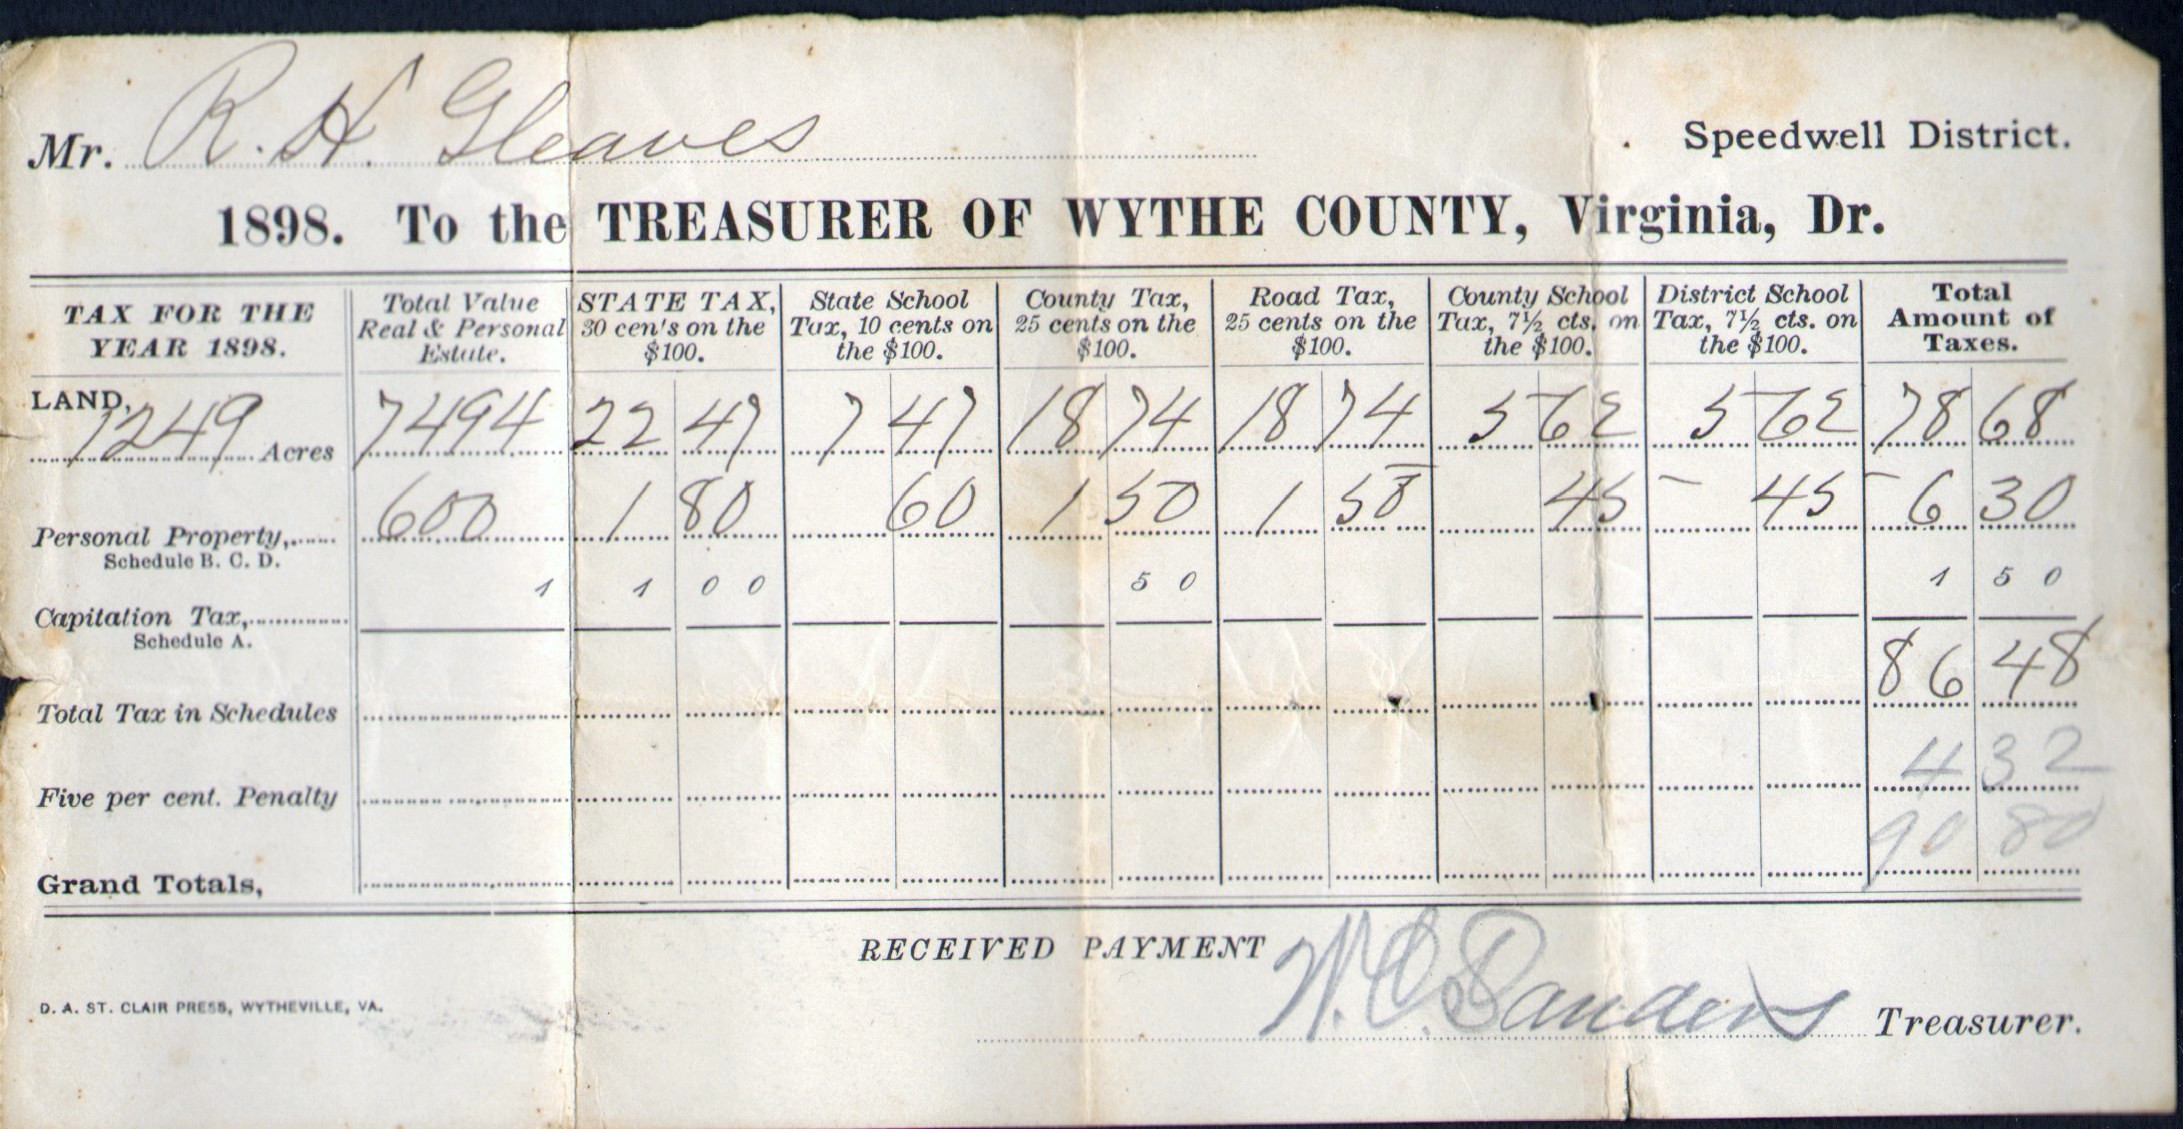 Mr. R. H. Gleaves
Speedwell District.
1898. To the TREASURER OF WYTHE COUNTY, Virginia, Dr.
TAX FOR THE YEAR 1898. Total Value Real & Personal Estate. STATE TAX, 30 cen's on the $100. State School Tax, 10 cents on the $100. County Tax, 25 cents on the $100. Road Tax, 25 cents on the $100. County School Tax, 7½ cts. on the $100. District School Tax, 7½ cts. on the $100. Total Amount of Taxes.
LAND, 1249 Acres 7494 22 47 7 47 18 74 18 74 5 62 5 62 78 68
Personal Property, 600 1 80 60 1 50 1 50 45 45 6 30
Schedule B. C. D.
Capitation Tax, 1 1 00 50 1 50
Schedule A.
Total Tax in Schedules 86 48
Five per cent. Penalty 4 32
Grand Totals, 90 80
RECEIVED PAYMENT
W. C. Sanders Treasurer.
D. A. ST. CLAIR PRESS, WYTHEVILLE, VA.